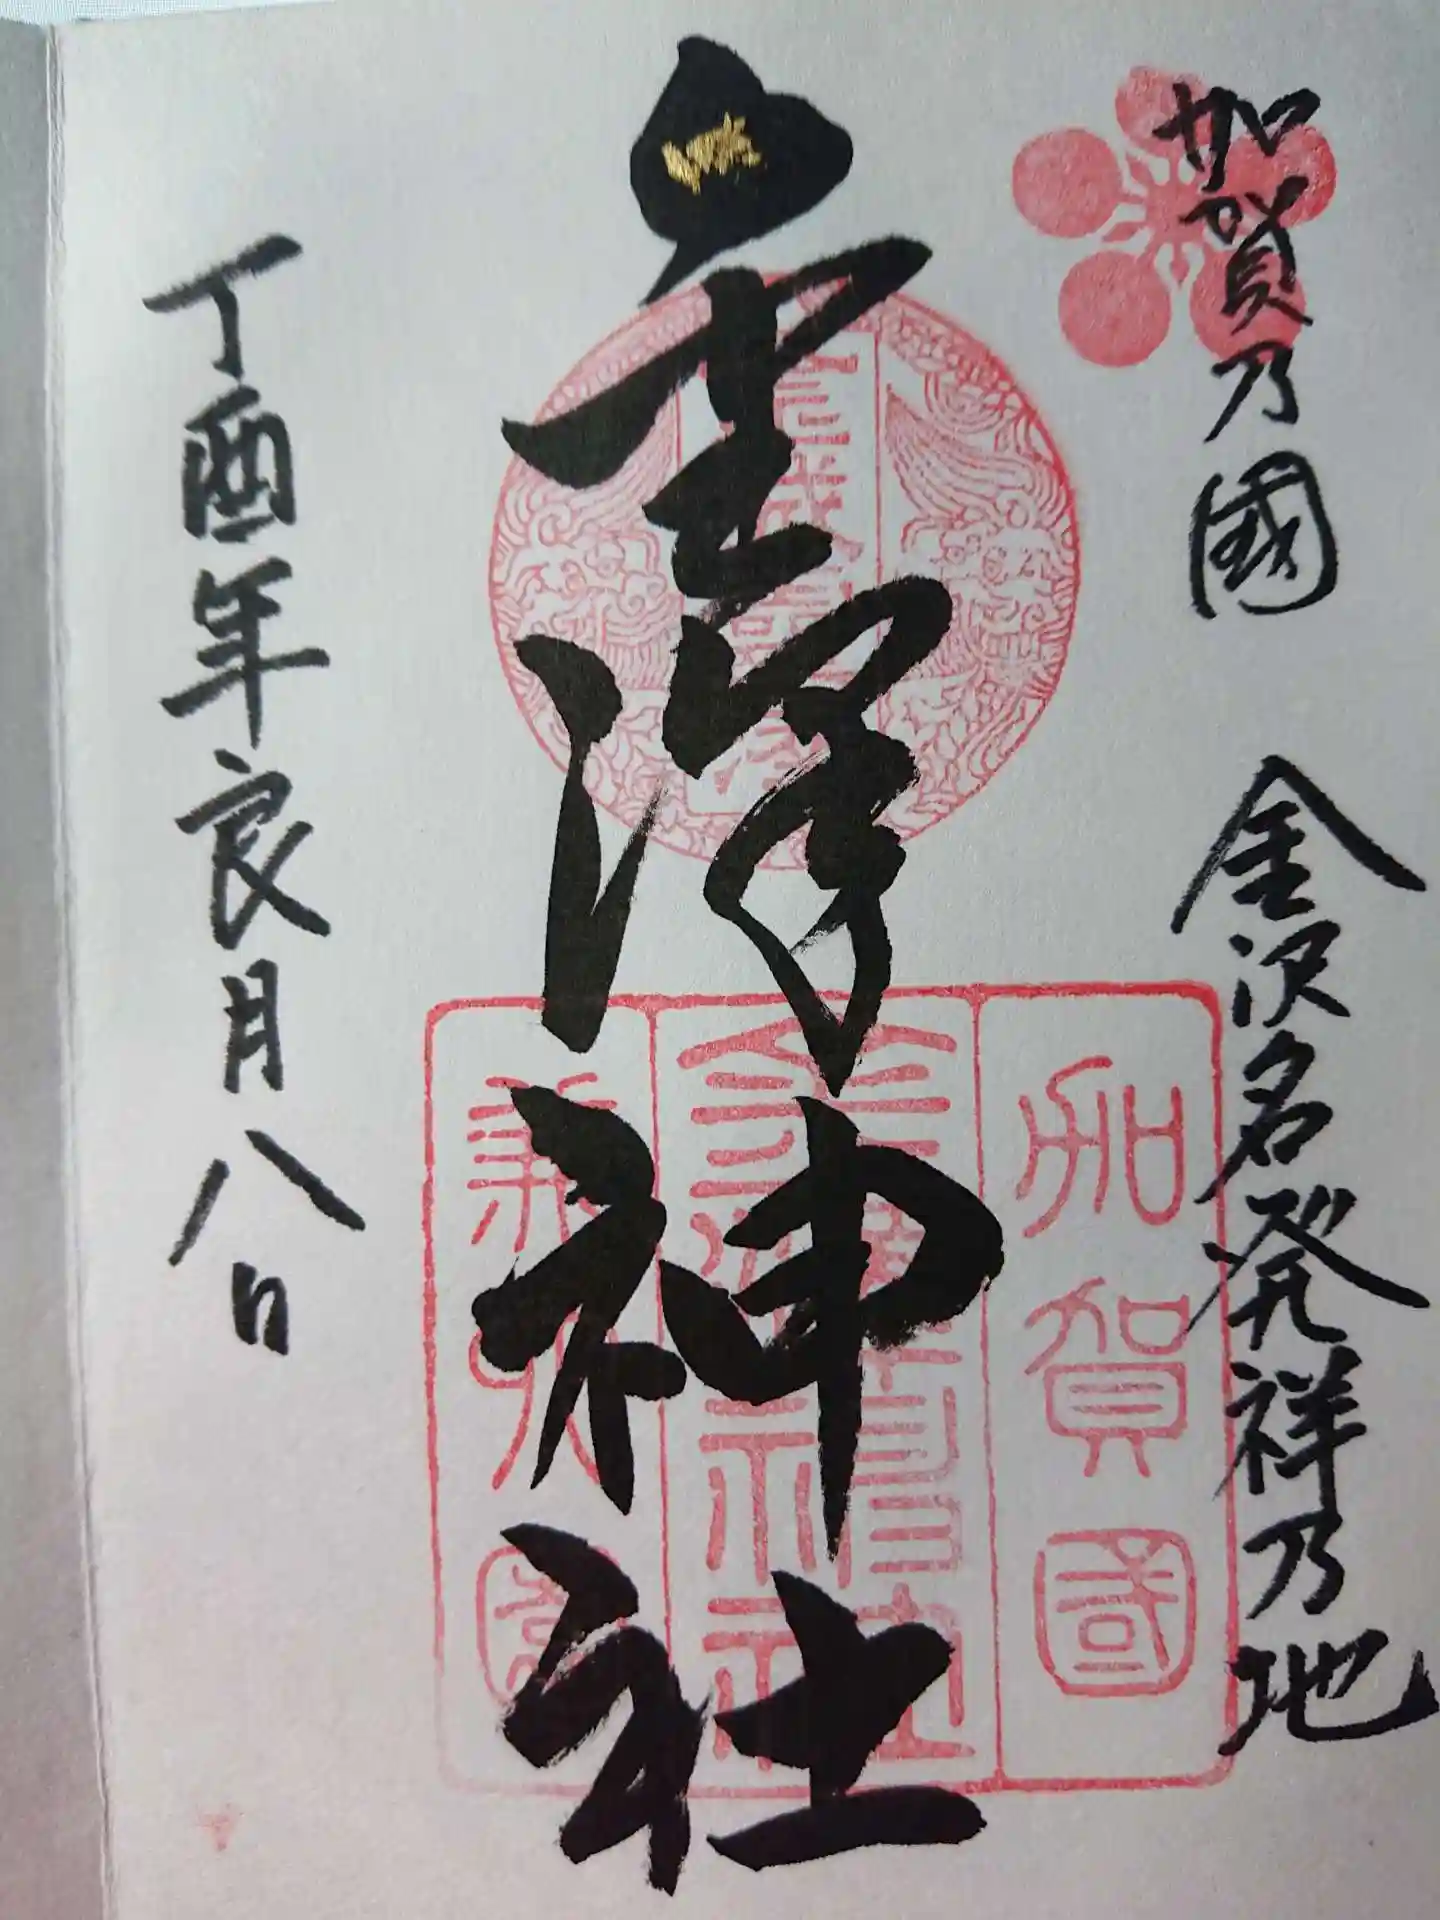 加賀乃國　金沢名発祥乃地
金澤神社
丁酉年良月八日
加賀國
金澤神社
兼六園